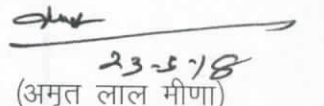 23-5-18
(अमृत लाल मीणा)